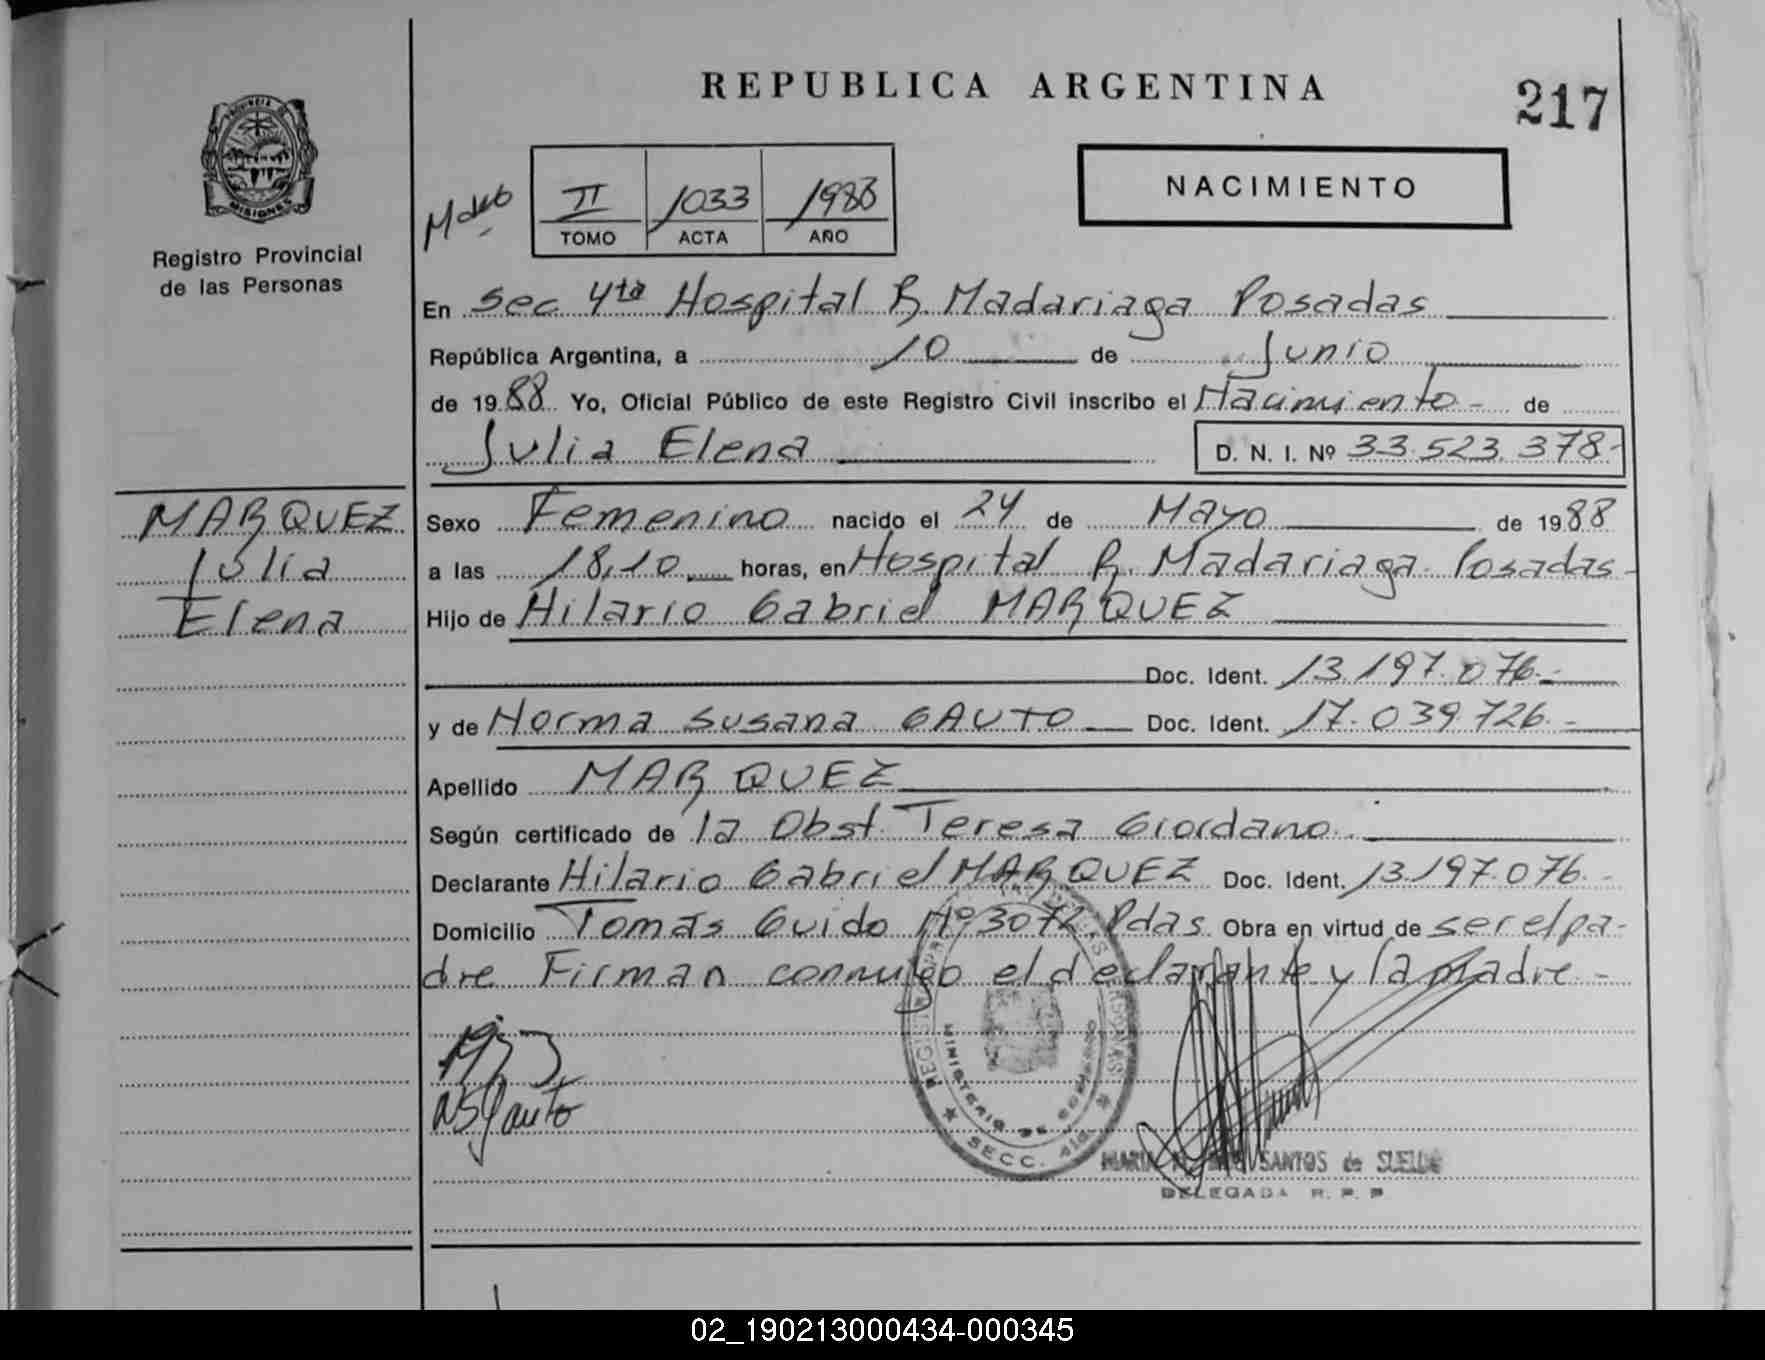 REPUBLICA ARGENTINA
217
PROVINCIA DE
MISIONES
Registro Provincial
de las Personas
II 1033 1988
TOMO ACTA AÑO
NACIMIENTO
En Sec 4ta Hospital R. Madariaga Posadas
República Argentina, a 10 de Junio
de 1988 Yo, Oficial Público de este Registro Civil inscribo el Nacimiento - de
Julia Elena D. N. I. Nº 33.523.378-
MARQUEZ
Julia
Elena
Sexo Femenino nacido el 24 de Mayo de 1988
a las 18,10 horas, en Hospital R. Madariaga. Posadas -
Hijo de Hilario Gabriel MARQUEZ
Doc. Ident. 13.197.076.-
y de Norma Susana GAUTO Doc. Ident. 17.039.726.-
Apellido MARQUEZ
Según certificado de la Obst. Teresa Giordano.
Declarante Hilario Gabriel MARQUEZ Doc. Ident. 13.197.076.-
Domicilio Tomás Guido Nº 3072 Pdas. Obra en virtud de ser el pa-
dre Firman conmigo el declarante y la Madre -
NSGauto
MINISTERIO DE GOBIERNO
SECC. 4ta.
MARIA SANTOS de
DELEGADA R. P. P.
02_190213000434-000345